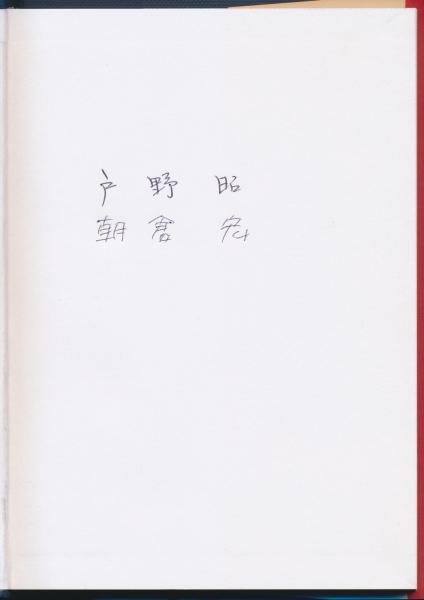 戸野昭
朝倉宏